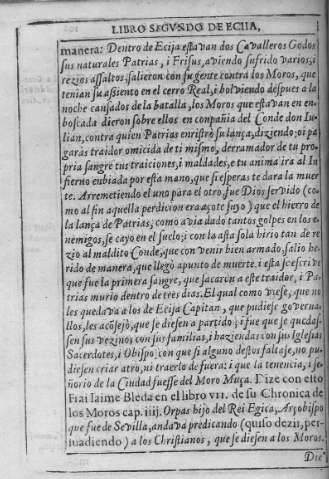 LIBRO SEGVNDO DE ECIJA,
manera: Dentro de Ecija estavan dos Cavalleros Godos
sus naturales Patrias, i Frisus, aviendo sufrido varios, i
rezios assaltos, salieron con su gente contra los Moros, que
tenian su assiento en el cerro Real, i bolviendo despues a la
noche cansados de la batalla, los Moros que estavan en en-
boscada dieron sobre ellos en conpañia del Conde don Iu-
lian, contra quien Patrias enristrò su lança, diziendo; oi pa
garás traidor omicida de ti mismo, derramador de tu pro-
pria sangre tus traiciones, i maldades, e tu anima ira al In
fierno enbiada por esta mano, que si esperas te dara la muer
te. Arremetiendo el uno para el otro, fue Dios servido (co-
mo al fin aquella perdicion era açote suyo) que el hierro de
la lança de Patrias, como avia dado tantos golpes en los e-
nemigos, se cayo en el suelo; i con la asta sola hirio tan de re
zio al maldito Conde, que con venir bien armado, salio he-
rido de manera, que llegò apunto de muerte. i esta se escrive
que fue la primera sangre, que sacaron a este traidor, i Pa-
trias murio dentro de tres dias. El qual como viese, que no
les quedava a los de Ecija Capitan, que pudiese governa-
llos, les acõsejò, que se diesen a partido; i fue que se quedas-
sen sus vezinos con sus familias, i haziendas con sus Iglesias
Sacerdotes, i Obispo; con que si alguno destos faltase, no pu-
diesen criar otro, ni traerlo de fuera: i que la tenencia, i se-
ñorio de la Ciudad fuesse del Moro Muça. Dize con esto
Frai Iaime Bleda en el libro VII. de su Chronica de
los Moros cap. iiij. Orpas hijo del Rei Egica, Arçobispo
que fue de Sevilla, andava predicando (quilo dezir, per-
suadiendo) a los Christianos, que se diesen a los Moros.